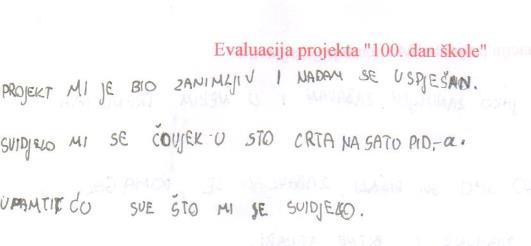 Evaluacija projekta "100. dan škole"
PROJEKT MI JE BIO ZANIMLJIV I NADAM SE USPJEŠAN.
SVIDJELO MI SE ČOVJEK U STO CRTA NA SATO PID,-a.
UPAMTIT ĆO SVE ŠTO MI SE SVIDJELO.